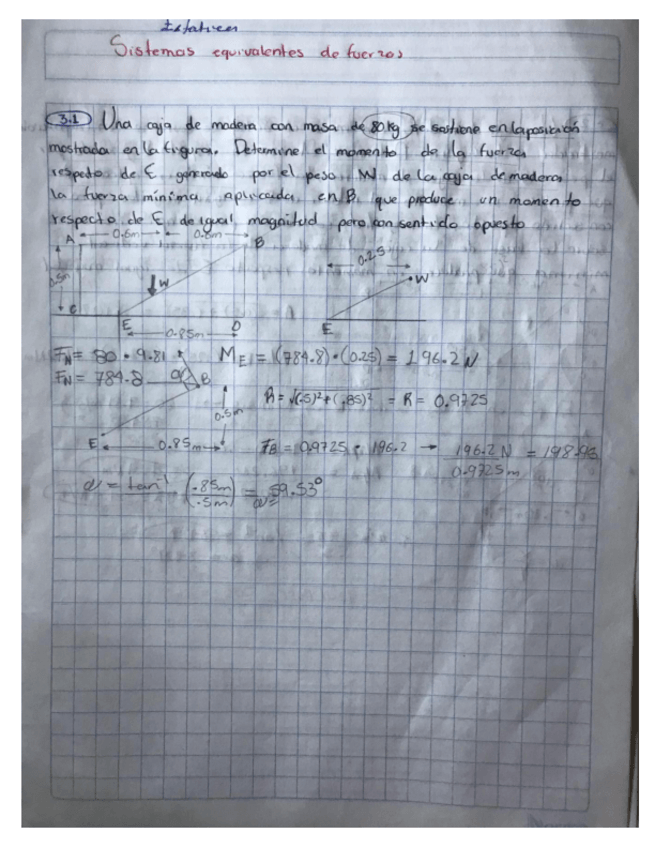 Estatica
Sistemas equivalentes de fuerzas
3.1 Una caja de madera con masa de 80 kg se sostiene en la posición
mostrada en la figura. Determine el momento de la fuerza
respecto de E generado por el peso W de la caja de madera
la fuerza mínima aplicada en B que produce un momento
respecto de E de igual magnitud pero con sentido opuesto
A 0.6m 0.6m B
0.25
W
W
0.5m
C
E 0.85m D
E
FN = 80 • 9.81
ME = (784.8)•(0.25) = 196.2 N
FN = 784.8
α B
R = √(.5)²+(.85)² = R = 0.9725
0.5m
E 0.85m
FB = 0.9725 • 196.2 → 196.2 N / 0.9725 m = 198.93
α = tan⁻¹ (.85m/.5m) = 59.53°
α=